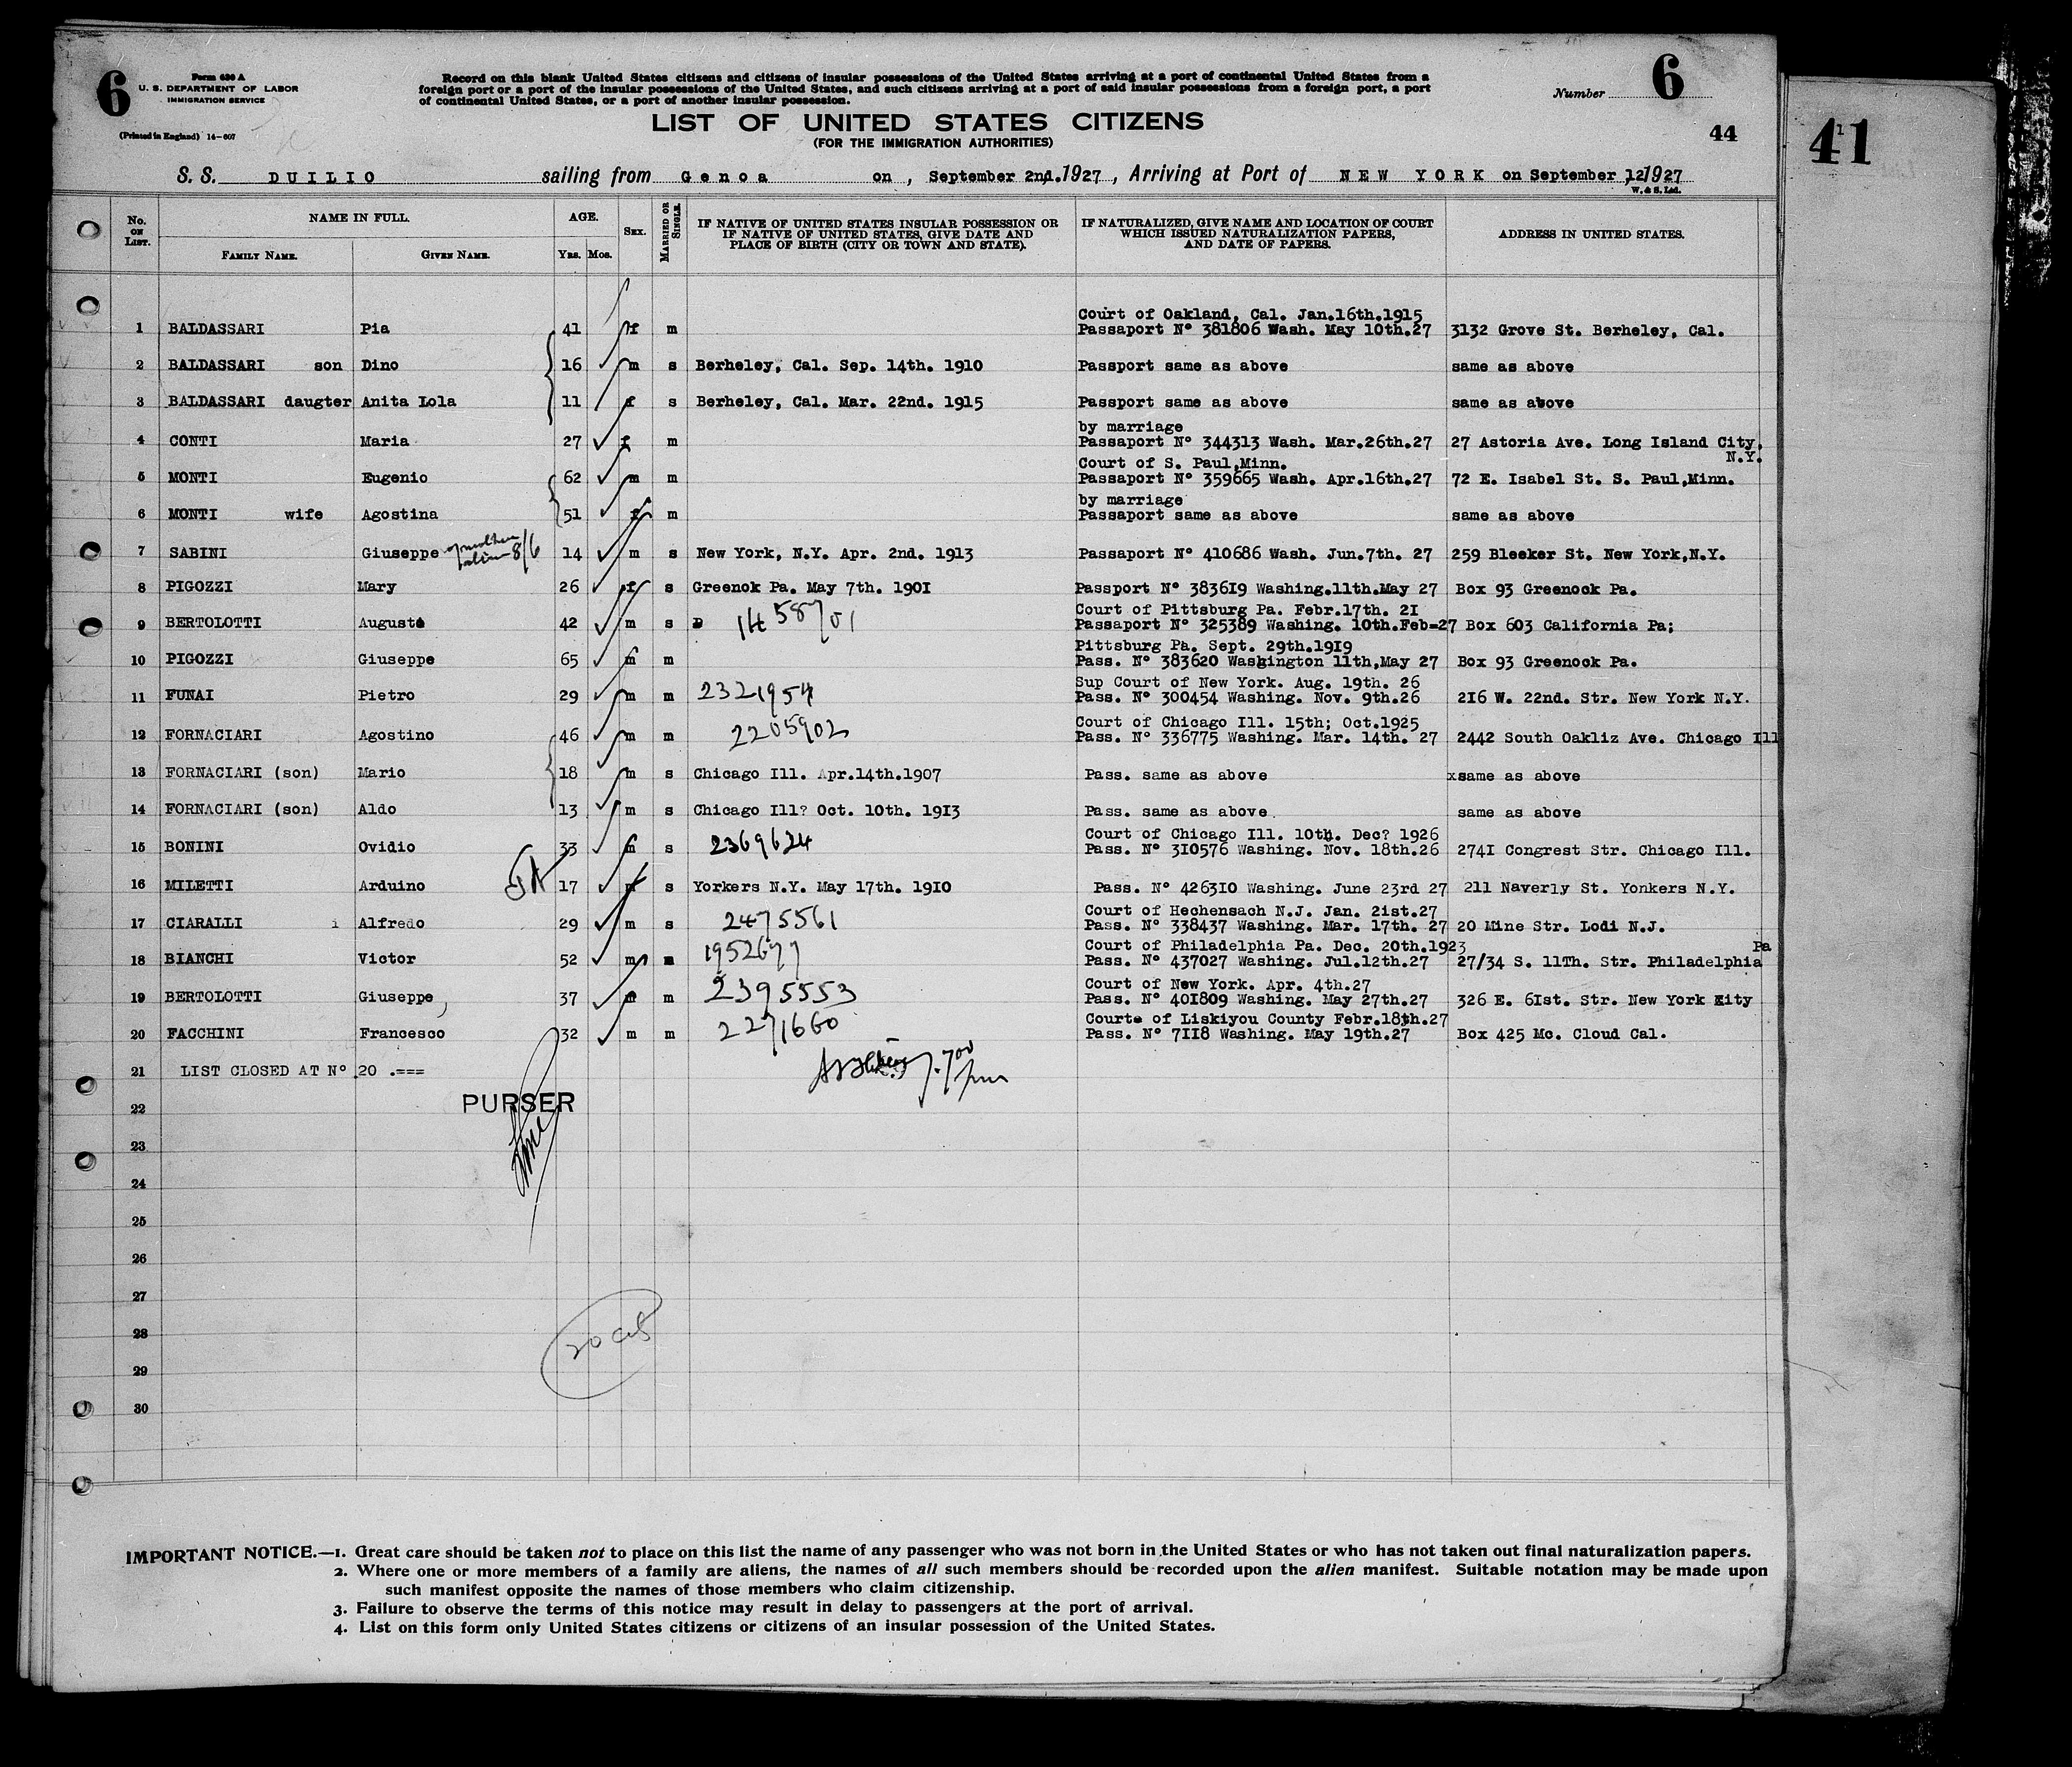 6
Form 630 A
U. S. DEPARTMENT OF LABOR
IMMIGRATION SERVICE
(Printed in England) 14-607
Record on this blank United States citizens and citizens of insular possessions of the United States arriving at a port of continental United States from a
foreign port or a port of the insular possessions of the United States, and such citizens arriving at a port of said insular possessions from a foreign port, a port
of continental United States, or a port of another insular possession.
Number 6
LIST OF UNITED STATES CITIZENS
(FOR THE IMMIGRATION AUTHORITIES)
44
41
S. S. DUILIO sailing from Genoa on, September 2nd. 1927, Arriving at Port of NEW YORK on September 12 1927
W. & S. Ltd.
No. ON LIST. NAME IN FULL. FAMILY NAME. GIVEN NAME. AGE. YRS. MOS. SEX. MARRIED OR SINGLE. IF NATIVE OF UNITED STATES INSULAR POSSESSION OR IF NATIVE OF UNITED STATES, GIVE DATE AND PLACE OF BIRTH (CITY OR TOWN AND STATE). IF NATURALIZED, GIVE NAME AND LOCATION OF COURT WHICH ISSUED NATURALIZATION PAPERS, AND DATE OF PAPERS. ADDRESS IN UNITED STATES.
Court of Oakland, Cal. Jan.16th.1915
1 BALDASSARI Pia 41 f m Passaport Nº 381806 Wash. May 10th.27 3132 Grove St. Berheley, Cal.
2 BALDASSARI son Dino 16 m s Berheley, Cal. Sep. 14th. 1910 Passport same as above same as above
3 BALDASSARI daugter Anita Lola 11 f s Berheley, Cal. Mar. 22nd. 1915 Passport same as above same as above
by marriage
4 CONTI Maria 27 f m Passaport Nº 344313 Wash. Mar.26th.27 27 Astoria Ave. Long Island City,
N.Y.
Court of S. Paul,Minn.
5 MONTI Eugenio 62 m m Passaport Nº 359665 Wash. Apr.16th.27 72 E. Isabel St. S. Paul,Minn.
by marriage
6 MONTI wife Agostina 51 f m Passaport same as above same as above
7 SABINI Giuseppe 8/6 14 m s New York, N.Y. Apr. 2nd. 1913 Passaport Nº 410686 Wash. Jun.7th. 27 259 Bleeker St. New York,N.Y.
8 PIGOZZI Mary 26 f s Greenok Pa. May 7th. 1901 Passport Nº 383619 Washing.11th.May 27 Box 93 Greenock Pa.
Court of Pittsburg Pa. Febr.17th. 21
9 BERTOLOTTI Auguste 42 m s 1458701 Passaport Nº 325389 Washing. 10th.Feb=27 Box 603 California Pa;
Pittsburg Pa. Sept. 29th.1919
10 PIGOZZI Giuseppe 65 m m Pass. Nº 383620 Washington 11th,May 27 Box 93 Greenock Pa.
Sup Court of New York. Aug. 19th. 26
11 FUNAI Pietro 29 m m 2321954 Pass. Nº 300454 Washing. Nov. 9th.26 216 W. 22nd. Str. New York N.Y.
Court of Chicago Ill. 15th; Oct.1925
12 FORNACIARI Agostino 46 m m 2205902 Pass. Nº 336775 Washing. Mar. 14th. 27 2442 South Oakliz Ave. Chicago Ill
13 FORNACIARI (son) Mario 18 m s Chicago Ill. Apr.14th.1907 Pass. same as above xsame as above
14 FORNACIARI (son) Aldo 13 m s Chicago Ill? Oct. 10th. 1913 Pass. same as above. same as above
Court of Chicago Ill. 10th. Dec? 1926
15 BONINI Ovidio 33 m s 2369624 Pass. Nº 310576 Washing. Nov. 18th.26 2741 Congrest Str. Chicago Ill.
16 MILETTI Arduino 17 m s Yorkers N.Y. May 17th. 1910 Pass. Nº 426310 Washing. June 23rd 27 211 Naverly St. Yonkers N.Y.
Court of Hechensach N.J. Jan. 21st.27
17 CIARALLI i Alfredo 29 m s 2475561 Pass. Nº 338437 Washing. Mar. 17th. 27 20 Mine Str. Lodi N.J.
Court of Philadelphia Pa. Dec. 20th.1923 Pa
18 BIANCHI Victor 52 m m 1952677 Pass. Nº 437027 Washing. Jul.12th.27 27/34 S. 11Th. Str. Philadelphia
Court of New York. Apr. 4th.27
19 BERTOLOTTI Giuseppe 37 m m 2395553 Pass. Nº 401809 Washing. May 27th.27 326 E. 61st. Str. New York Eity
Courte of Liskiyou County Febr.18th.27
20 FACCHINI Francesco 32 m m 2271660 Pass. Nº 7118 Washing. May 19th.27 Box 425 Mc. Cloud Cal.
21 LIST CLOSED AT Nº 20 .===
22 PURSER
23
24
25
26
27
28
29
30
IMPORTANT NOTICE.—1. Great care should be taken not to place on this list the name of any passenger who was not born in the United States or who has not taken out final naturalization papers.
2. Where one or more members of a family are aliens, the names of all such members should be recorded upon the alien manifest. Suitable notation may be made upon
such manifest opposite the names of those members who claim citizenship.
3. Failure to observe the terms of this notice may result in delay to passengers at the port of arrival.
4. List on this form only United States citizens or citizens of an insular possession of the United States.